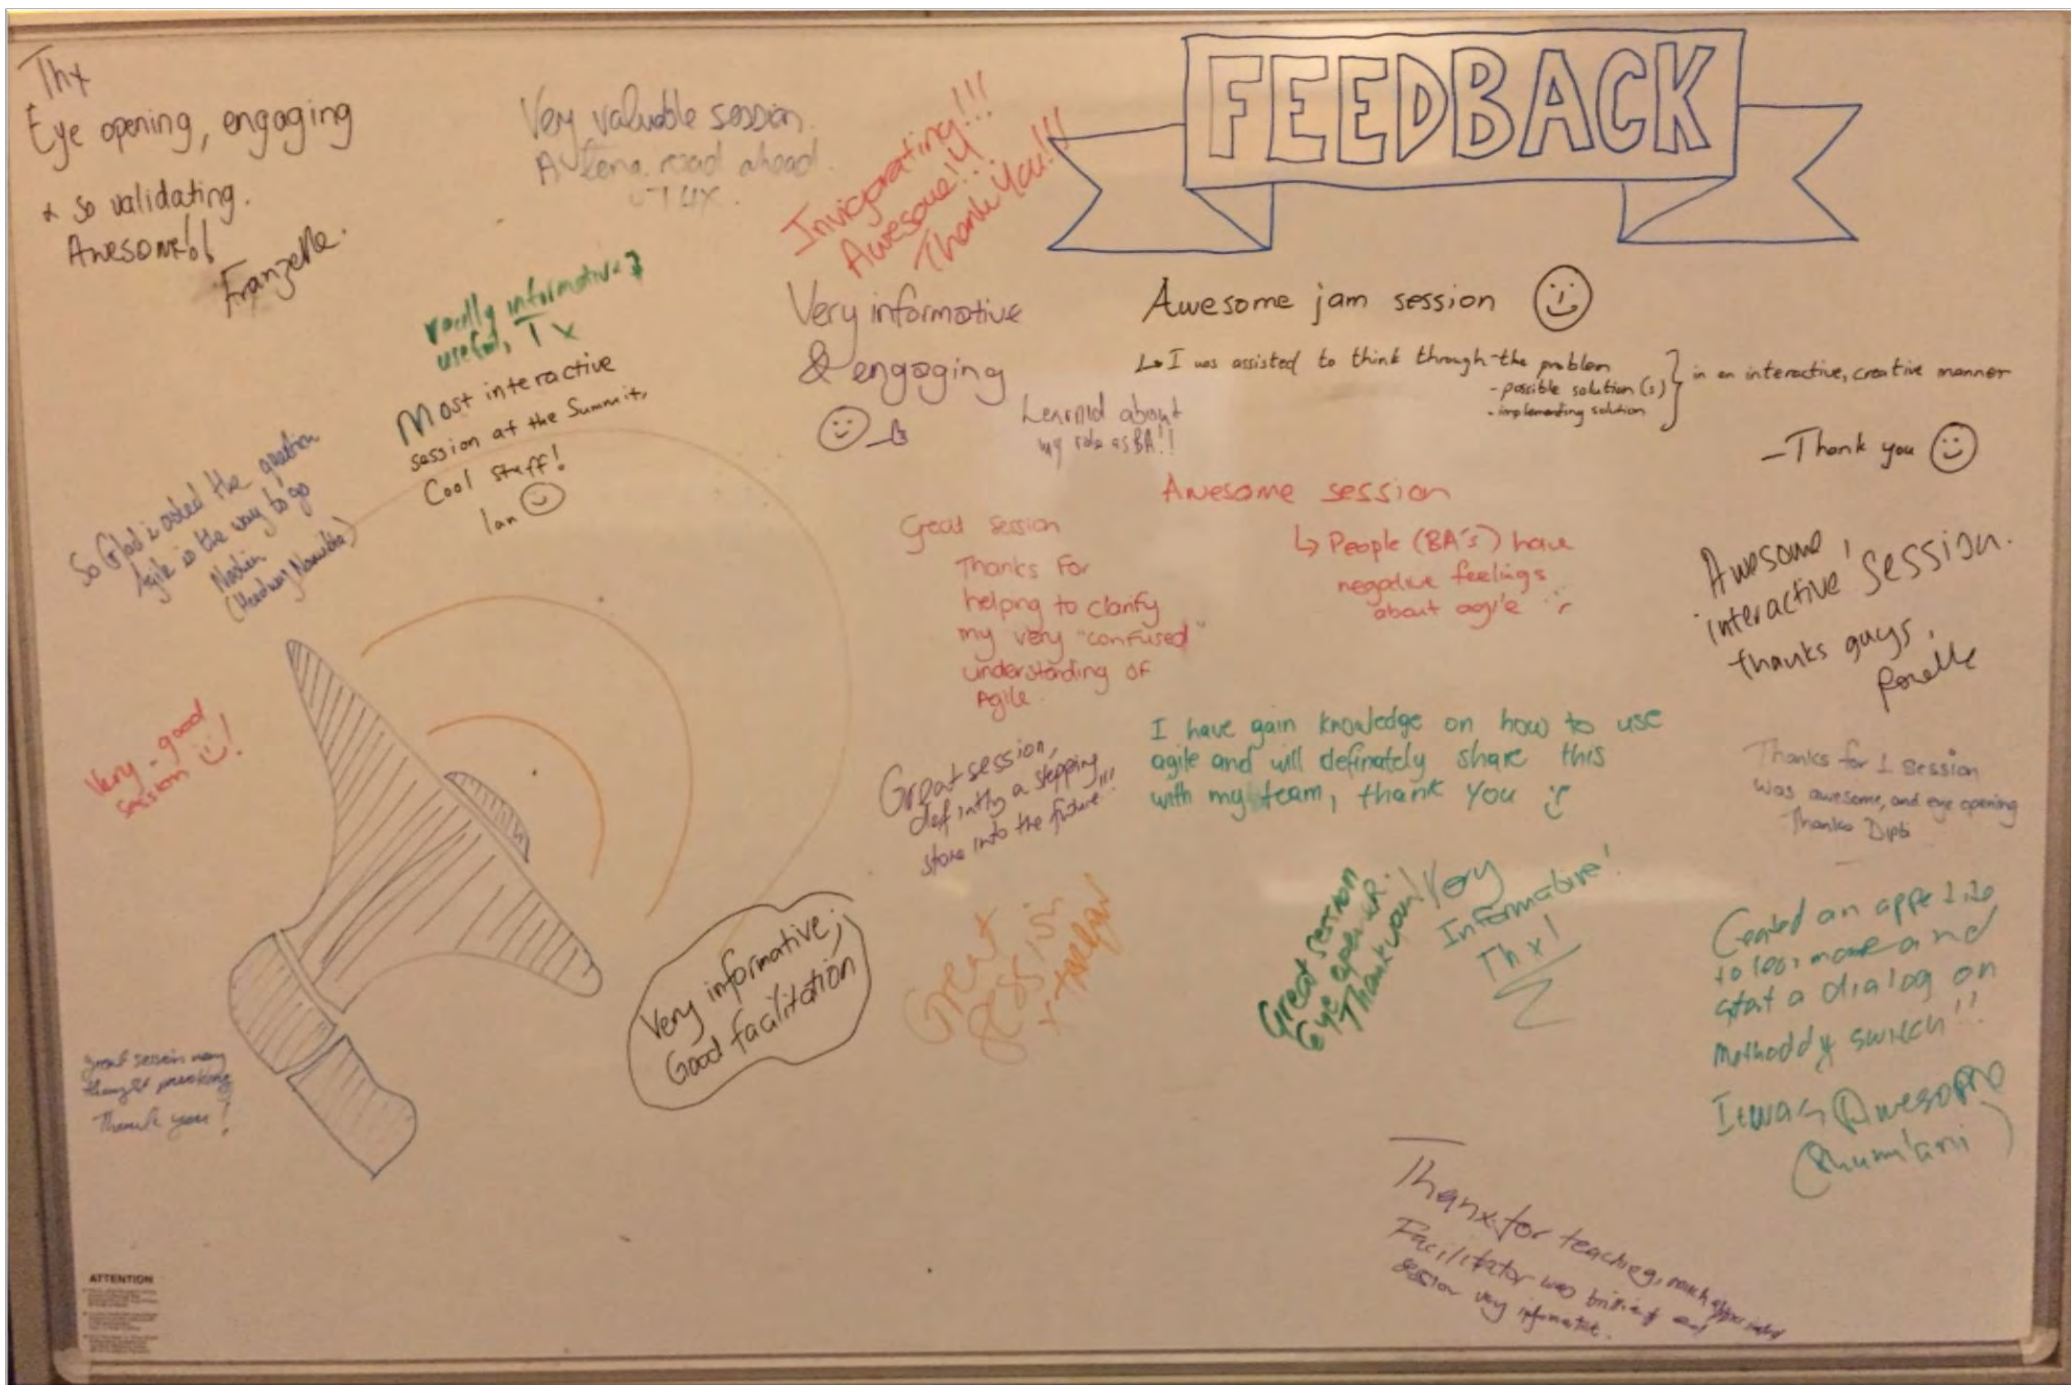 FEEDBACK
Thx
Eye opening, engaging
& so validating.
Awesome!!
Franzelle.
Very valuable session.
A long road ahead.
Thx.
Invigorating!!!
Awesome!!
Thank You!!!
really informative &
useful, Tx
Most interactive
session at the Summit,
Cool stuff!
Ian
Very informative
& engaging
Learnld about
my role as BA!!
Awesome jam session
I was assisted to think through the problem
- possible solution(s)
- implementing solution
in an interactive, creative manner
- Thank you
So Glad i asked the question
Agile is the way to go
Great session
Thanks For
helping to clarify
my very "confused"
understanding of
Agile.
Awesome session
People (BA's) have
negative feelings
about agile
Awesome,
interactive session.
thanks guys,
Ronelle
Very - good
session !
Great session,
defintly a stepping
stone into the future!!!
I have gain knowledge on how to use
agile and will definately share this
with my team, thank you
Thanks for 1 session
was awesome, and eye opening
Thanks
Very informative,
Good facilitation
Great
session
Great session
Eye opener.
Thank you!
Very
Informative!
Thx!
Created an appetite
to lear more and
start a dialog on
switch!!
It was Awesome
great session very
thought provoking
Thank you!
Thanx for teaching, much appreciated
Facilitator was brilliant and
session very informative.
ATTENTION